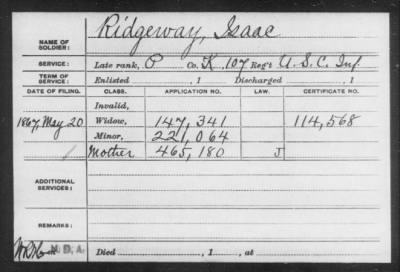 NAME OF SOLDIER: Ridgeway, Isaac
SERVICE: Late rank, P Co. K, 107 Reg't U. S. C. Inf.
TERM OF SERVICE: Enlisted , 1 Discharged , 1
DATE OF FILING. CLASS. APPLICATION NO. LAW. CERTIFICATE NO.
Invalid,
1867, May 20 Widow, 147,341 114,568
Minor, 221,064
Mother 465,180 J
ADDITIONAL SERVICES:
REMARKS:
N. D. A. Died , 1 , at